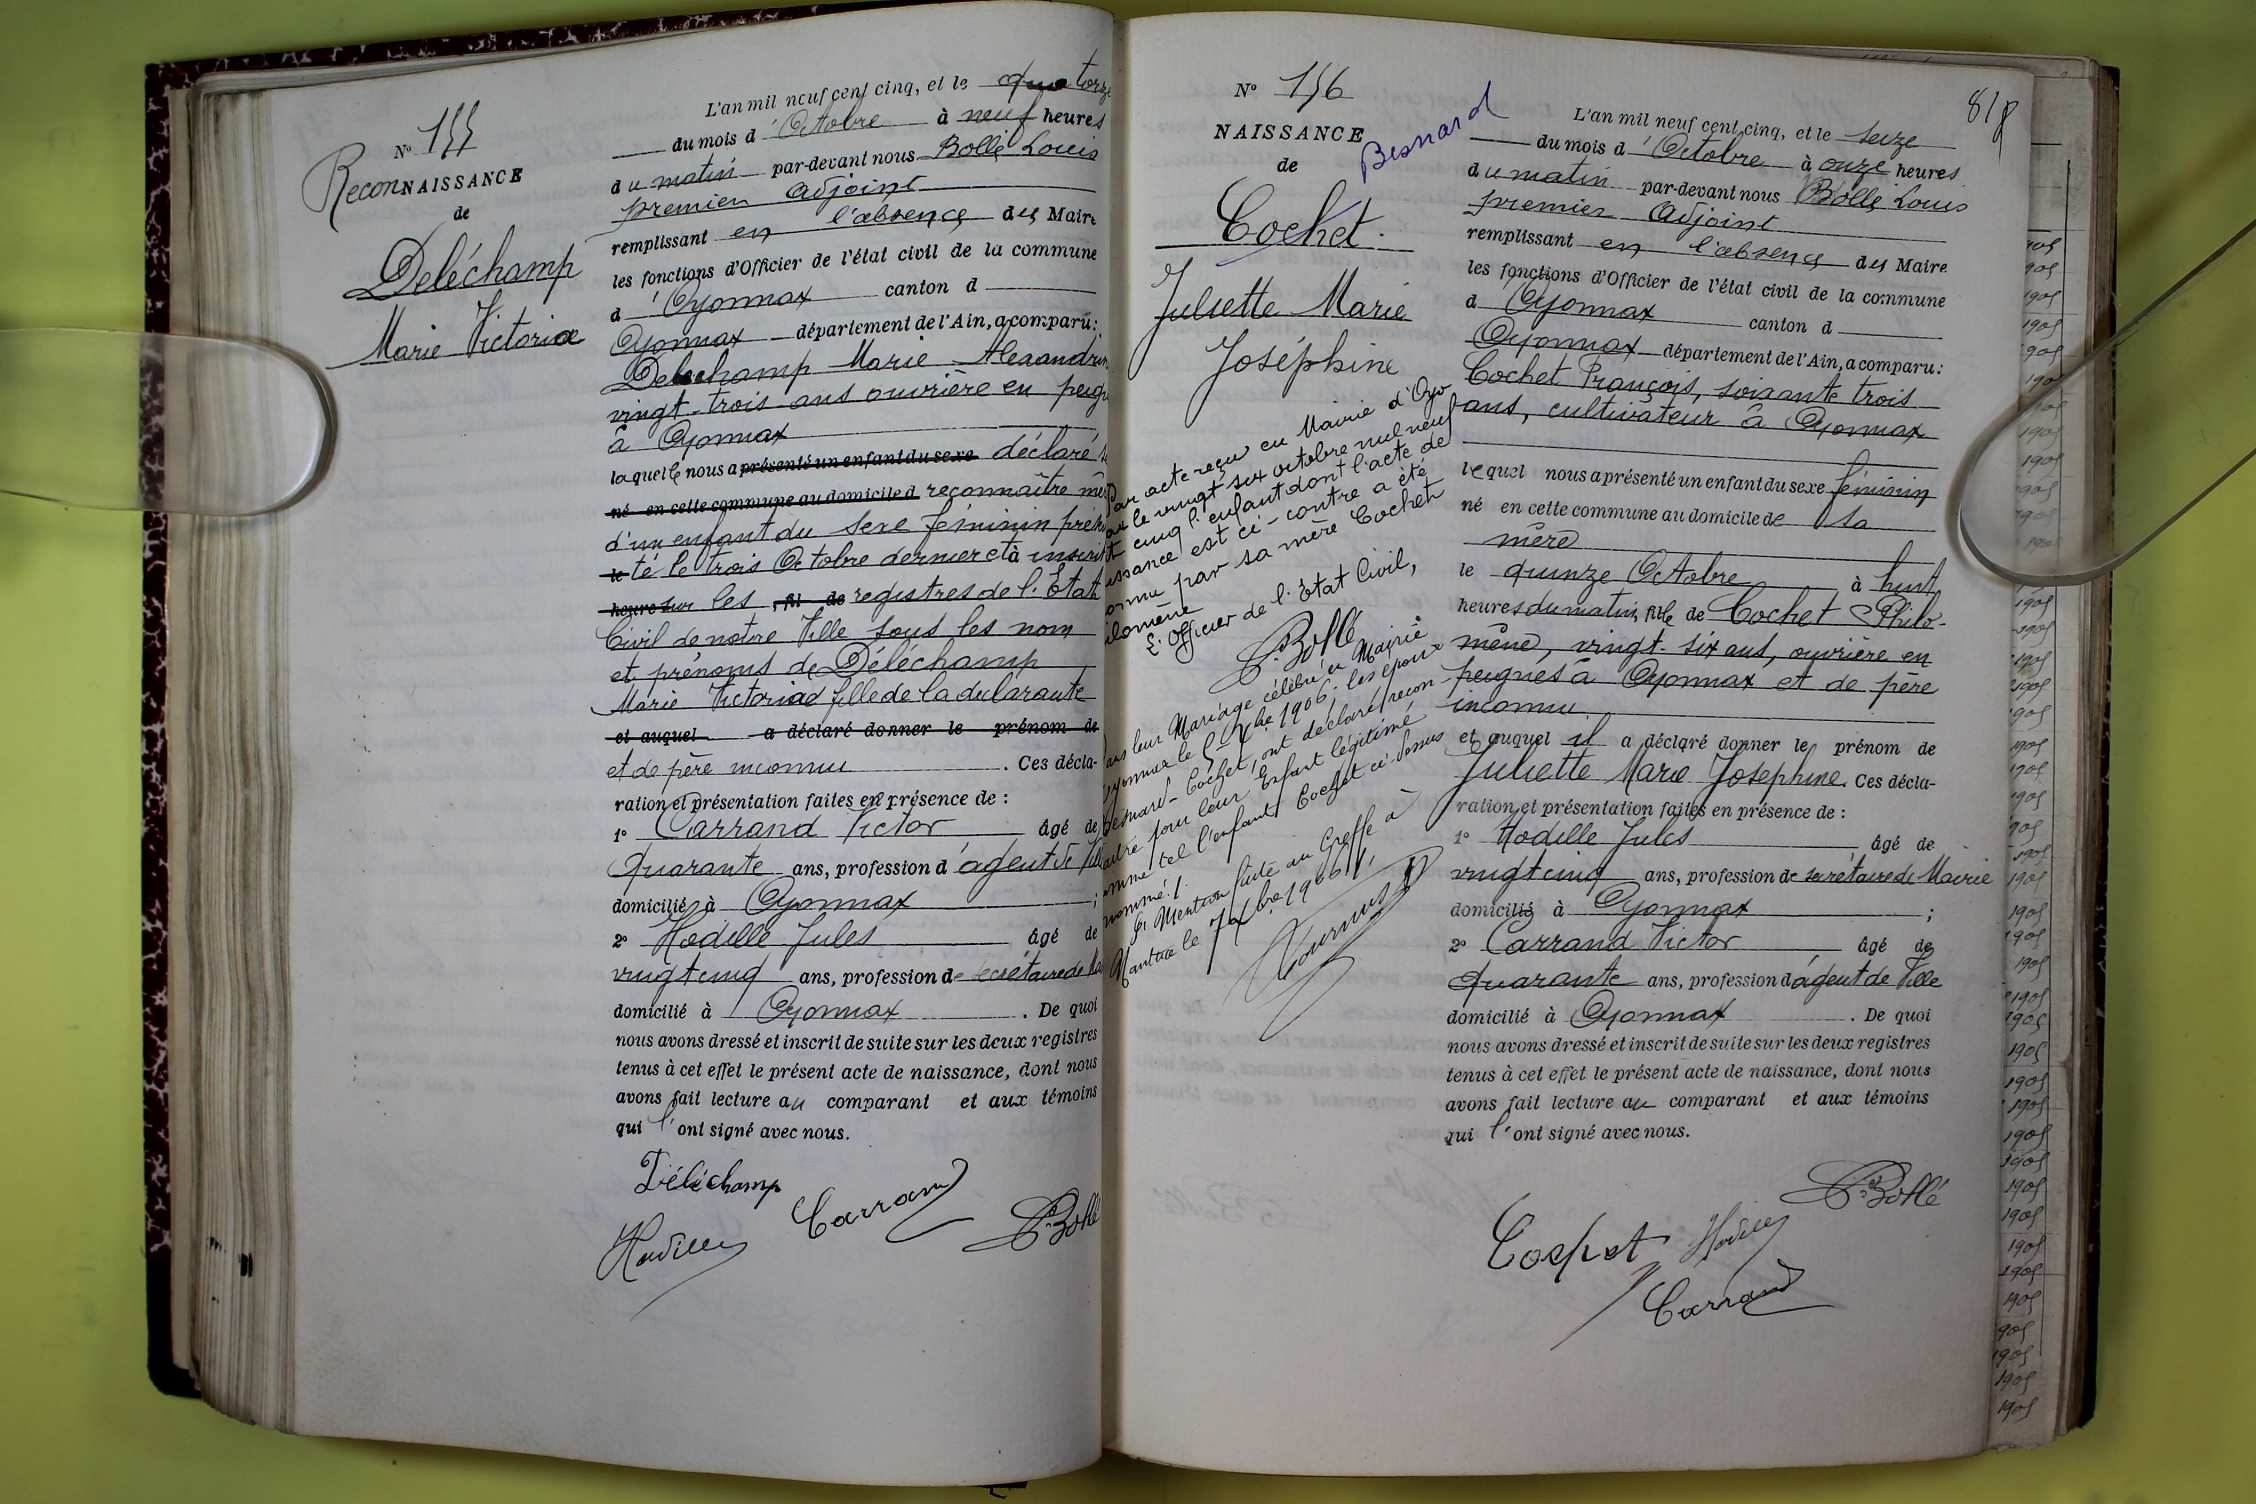 N° 155
ReconNAISSANCE
de
Deléchamp
Marie Victoria
L'an mil neuf cent cinq, et le quatorze
du mois d'Octobre à neuf heures
du matin par-devant nous Bollé Louis
premier Adjoint
remplissant en l'absence du Maire
les fonctions d'Officier de l'état civil de la commune
d'Oyonnax canton d
Oyonnax département de l'Ain, a comparu :
Deléchamp Marie Alexandrine
vingt-trois ans ouvrière en peign
à Oyonnax
laquelle nous a présenté un enfant du sexe déclaré
né en cette commune au domicile d reconnaître
d'un enfant du sexe féminin présen
le té le trois Octobre dernier et à inscrit
heure sur les , fil de registres de l'État
Civil de notre Ville sous les nom
et prénoms de Déléchamp
Marie Victoria fille de la déclarante
et auquel a déclaré donner le prénom de
et de père inconnu . Ces décla-
ration et présentation faites en présence de :
1° Carrand Victor âgé de
quarante ans, profession d'agent de
domicilié à Oyonnax ;
2° Hodille Jules âgé de
vingt cinq ans, profession de secrétaire de
domicilié à Oyonnax . De quoi
nous avons dressé et inscrit de suite sur les deux registres
tenus à cet effet le présent acte de naissance, dont nous
avons fait lecture au comparant et aux témoins
qui l'ont signé avec nous.
Déléchamp
Carrand
Hodille
L. Bollé
818
N° 156
NAISSANCE
de
Besnard
Cochet
Juliette Marie
Joséphine
Par acte reçu en Mairie d'Oyo
nax le vingt six octobre mil neuf
cent cinq l'enfant dont l'acte de
naissance est ci-contre a été
reconnu par sa mère Cochet
Philomène
L'Officier de l'État Civil,
L. Bollé
Dans leur Mariage célébré en Mairie
d'Oyonnax le 5 1906, les époux
Besnard-Cochet, ont déclaré recon-
naître pour leur Enfant légitimé
comme tel l'enfant Cochet ci-dessus
nommé.
Mention faite au Greffe à
Nantua le 7 Xbre 1906
L'an mil neuf cent cinq, et le seize
du mois d'Octobre à onze heures
du matin par-devant nous Bollé Louis
premier Adjoint
remplissant en l'absence du Maire
les fonctions d'Officier de l'état civil de la commune
d Oyonnax canton d
Oyonnax département de l'Ain, a comparu :
Cochet François, soixante trois
ans, cultivateur à Oyonnax
lequel nous a présenté un enfant du sexe féminin
né en cette commune au domicile de sa
mère
le quinze Octobre à huit
heures du matin, fille de Cochet Philo-
mène, vingt-six ans, ouvrière en
peignes à Oyonnax et de père
inconnu
et auquel il a déclaré donner le prénom de
Juliette Marie Joséphine. Ces décla-
ration et présentation faites en présence de :
1° Hodille Jules âgé de
vingt cinq ans, profession de secrétaire de Mairie
domicilié à Oyonnax ;
2° Carrand Victor âgé de
quarante ans, profession d'agent de Ville
domicilié à Oyonnax . De quoi
nous avons dressé et inscrit de suite sur les deux registres
tenus à cet effet le présent acte de naissance, dont nous
avons fait lecture au comparant et aux témoins
qui l'ont signé avec nous.
L. Bollé
Cochet
Hodille
Carrand